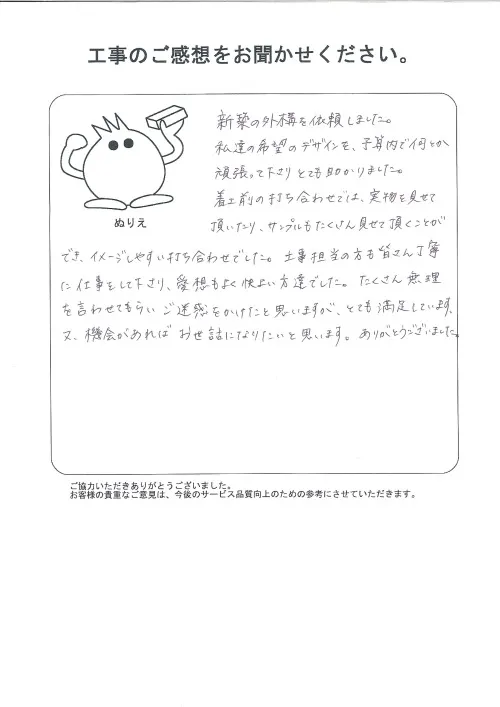 工事のご感想をお聞かせください。
新築の外構を依頼しました。
私達の希望のデザインを、予算内で何とか
頑張って下さりとても助かりました。
着工前の打ち合わせでは、実物を見せて
頂いたり、サンプルもたくさん見せて頂くことが
ぬりえ
でき、イメージしやすい打ち合わせでした。工事担当の方も皆さん丁寧
に仕事をして下さり、愛想もよく快よい方達でした。たくさん無理
を言わせてもらいご迷惑をかけたと思いますが、とても満足しています。
又、機会があればお世話になりたいと思います。ありがとうございました。
ご協力いただきありがとうございました。
お客様の貴重なご意見は、今後のサービス品質向上のための参考にさせていただきます。